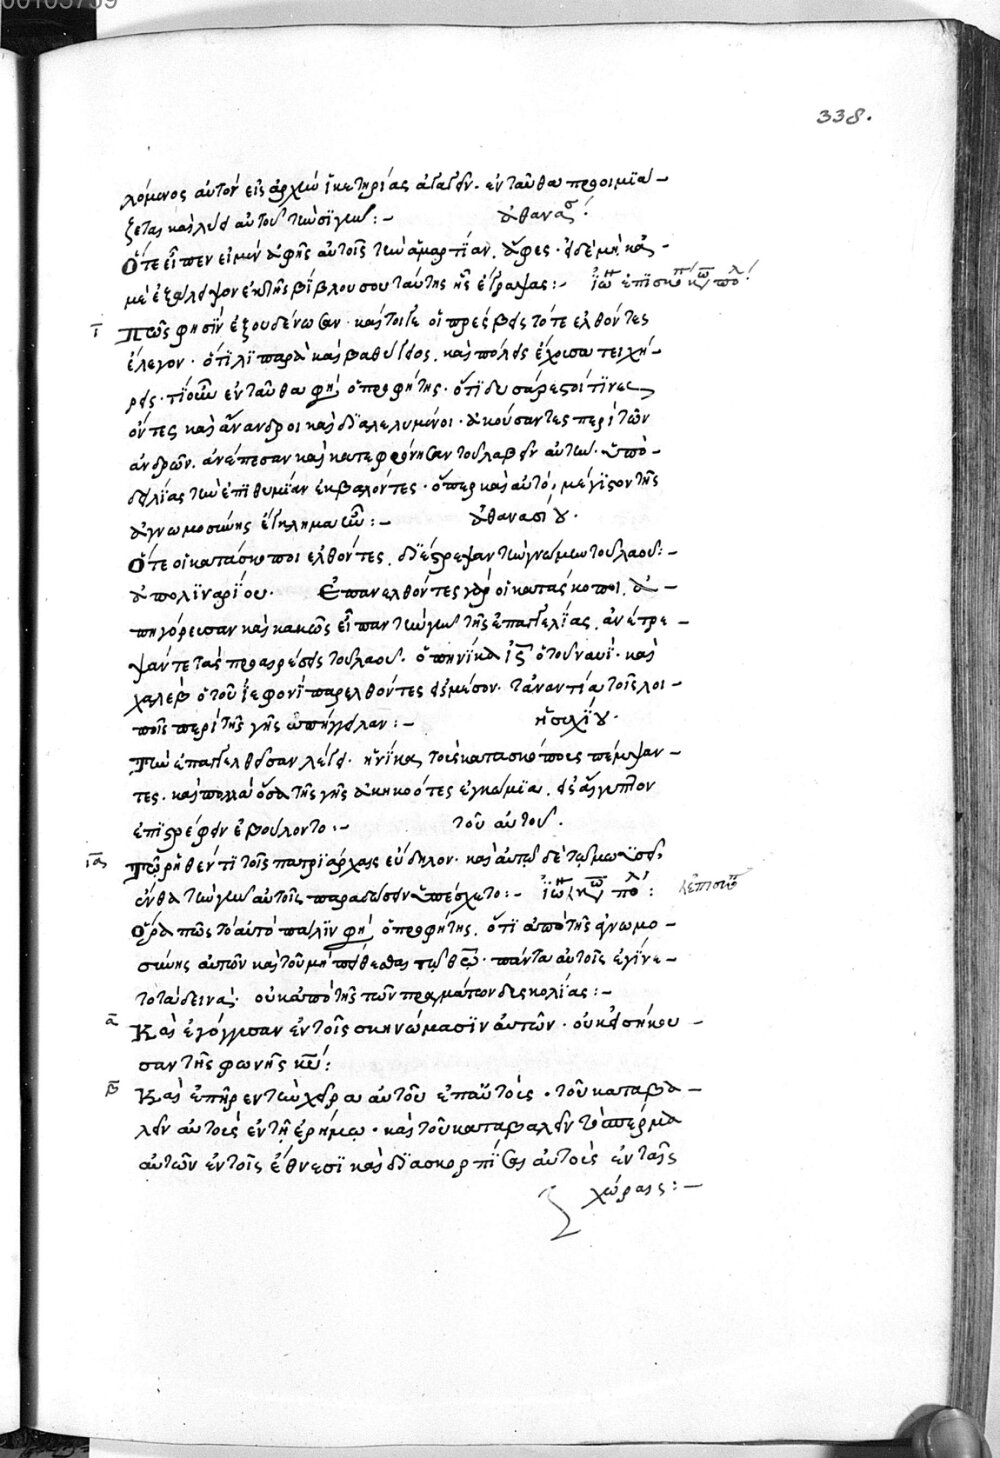 338.
λόμενος αὐτὸν εἰς ἀρχὴν ἱκετηρίας ἀγαγεῖν. ἐνταῦθα προοιμϊα –
ξεται καὶ λύει αὐτοῦ τὴν σϊγὴν :–   ἀθανασ
Ὅτε εἶπεν εἰ μὲν ἀφῆς αὐτοῖς τὴν ἁμαρτίαν, ἄφες. εἰ δὲ μὴ, κἀ –
μὲ ἐξάλειψον ἐκ τῆς βίβλου σου ταύτης ἧς ἔγραψας :–   ἰω ἐπϊσκο κων πο
ι Πῶς φησὶν ἐξουδένωσαν. καίτοιγε οἱ πρέσβεις τότε ἐλθόντες
ἔλεγον. ὅτι λιπαρὰ καὶ βαθύγειος. καὶ πόλεις ἔχουσα τειχή –
ρεις. τί οὖν ἐνταῦθα φη ὁ προφήτης. ὅτϊ δυσάρεστοί τϊνες
ὄντες καὶ ἄνανδροι καὶ δϊαλελυμένοι. ἀκούσαντες περὶ τῶν
ἀνδρῶν. ἀνέπεσαν καὶ κατεφρόνησαν τοῦ λαβεῖν αὐτήν. ὑπὸ –
δειλίας τὴν ἐπϊθυμϊαν ἐκβαλόντες. ὅπερ καὶ αὐτὸ, μέγϊστον τῆς
ἀγνωμοσύνης ἔγκλημα ἦν :–   ἀθανασίου.
Ὅτε οἱ κατάσκοποι ἐλθόντες, δϊέστρεψαν τὴν γνώμην τοῦ λαοῦ :–
ἀπολϊναρϊου.   Ἐπανελθόντες γὰρ οἱ κατάσκοποι, ἀ –
πηγόρευσαν καὶ κακῶς εἶπαν τὴν γῆν τῆς ἐπαγγελϊας, ἀνέτρε –
ψάν τε τὰς προαιρέσεις τοῦ λαοῦ. ὁπηνίκα ις ὁ τοῦ ναυῒ. καὶ
χαλὲβ ὁ τοῦ ἰεφονῒ παρελθόντες εἰς μέσον. τἀναντία τοῖς λοι –
ποῖς περὶ τῆς γῆς ἀπήγγειλαν :–   ἡσυχϊου.
Τὴν ἐπαγγελθεῖσαν λέγει. ἡνίκα τοὺς κατασκόπους πέμψαν –
τες. καὶ πολλὰ ὅσα τῆς γῆς ἀκηκοότες ἐγκώμϊα, εἰς αἴγυπτον
ἐπϊστρέφειν ἐβούλοντο :–   τοῦ αὐτοῦ.
ια Τῷ ῥηθέντϊ τοῖς πατρϊάρχαις εὔδηλον. καὶ αὐτῷ δὲ τῷ μωϋσεῖ,
ἔνθα τὴν γῆν αὐτοῖς παραδώσειν ὑπέσχετο :–   ἰω κων πο :   ἐπισκο
Ὅρα πῶς τὸ αὐτὸ παλϊν φη ὁ προφήτης. ὅτϊ ἀπὸ τῆς ἀγνωμο –
σύνης αὐτῶν καὶ τοῦ μὴ πείθεσθαι τῷ θεῷ. πάντα αὐτοῖς ἐγίνε –
το τὰ δεινά. οὐκ ἀπὸ τῆς τῶν πραγμάτων δυσκολίας :–
α Καὶ ἐγόγγυσαν ἐν τοῖς σκηνώμασϊν αὐτῶν. οὐκ εἰσήκου –
σαν τῆς φωνῆς κυ :
β Καὶ ἐπῆρεν τὴν χεῖρα αὐτοῦ ἐπ αὐτοὺς. τοῦ καταβα –
λεῖν αὐτοὺς ἐν τῇ ἐρήμῳ. καὶ τοῦ καταβαλεῖν τὸ σπέρμα
αὐτῶν ἐν τοῖς ἔθνεσϊ καὶ δϊασκορπϊσαι αὐτοὺς ἐν ταῖς
χώραις :–